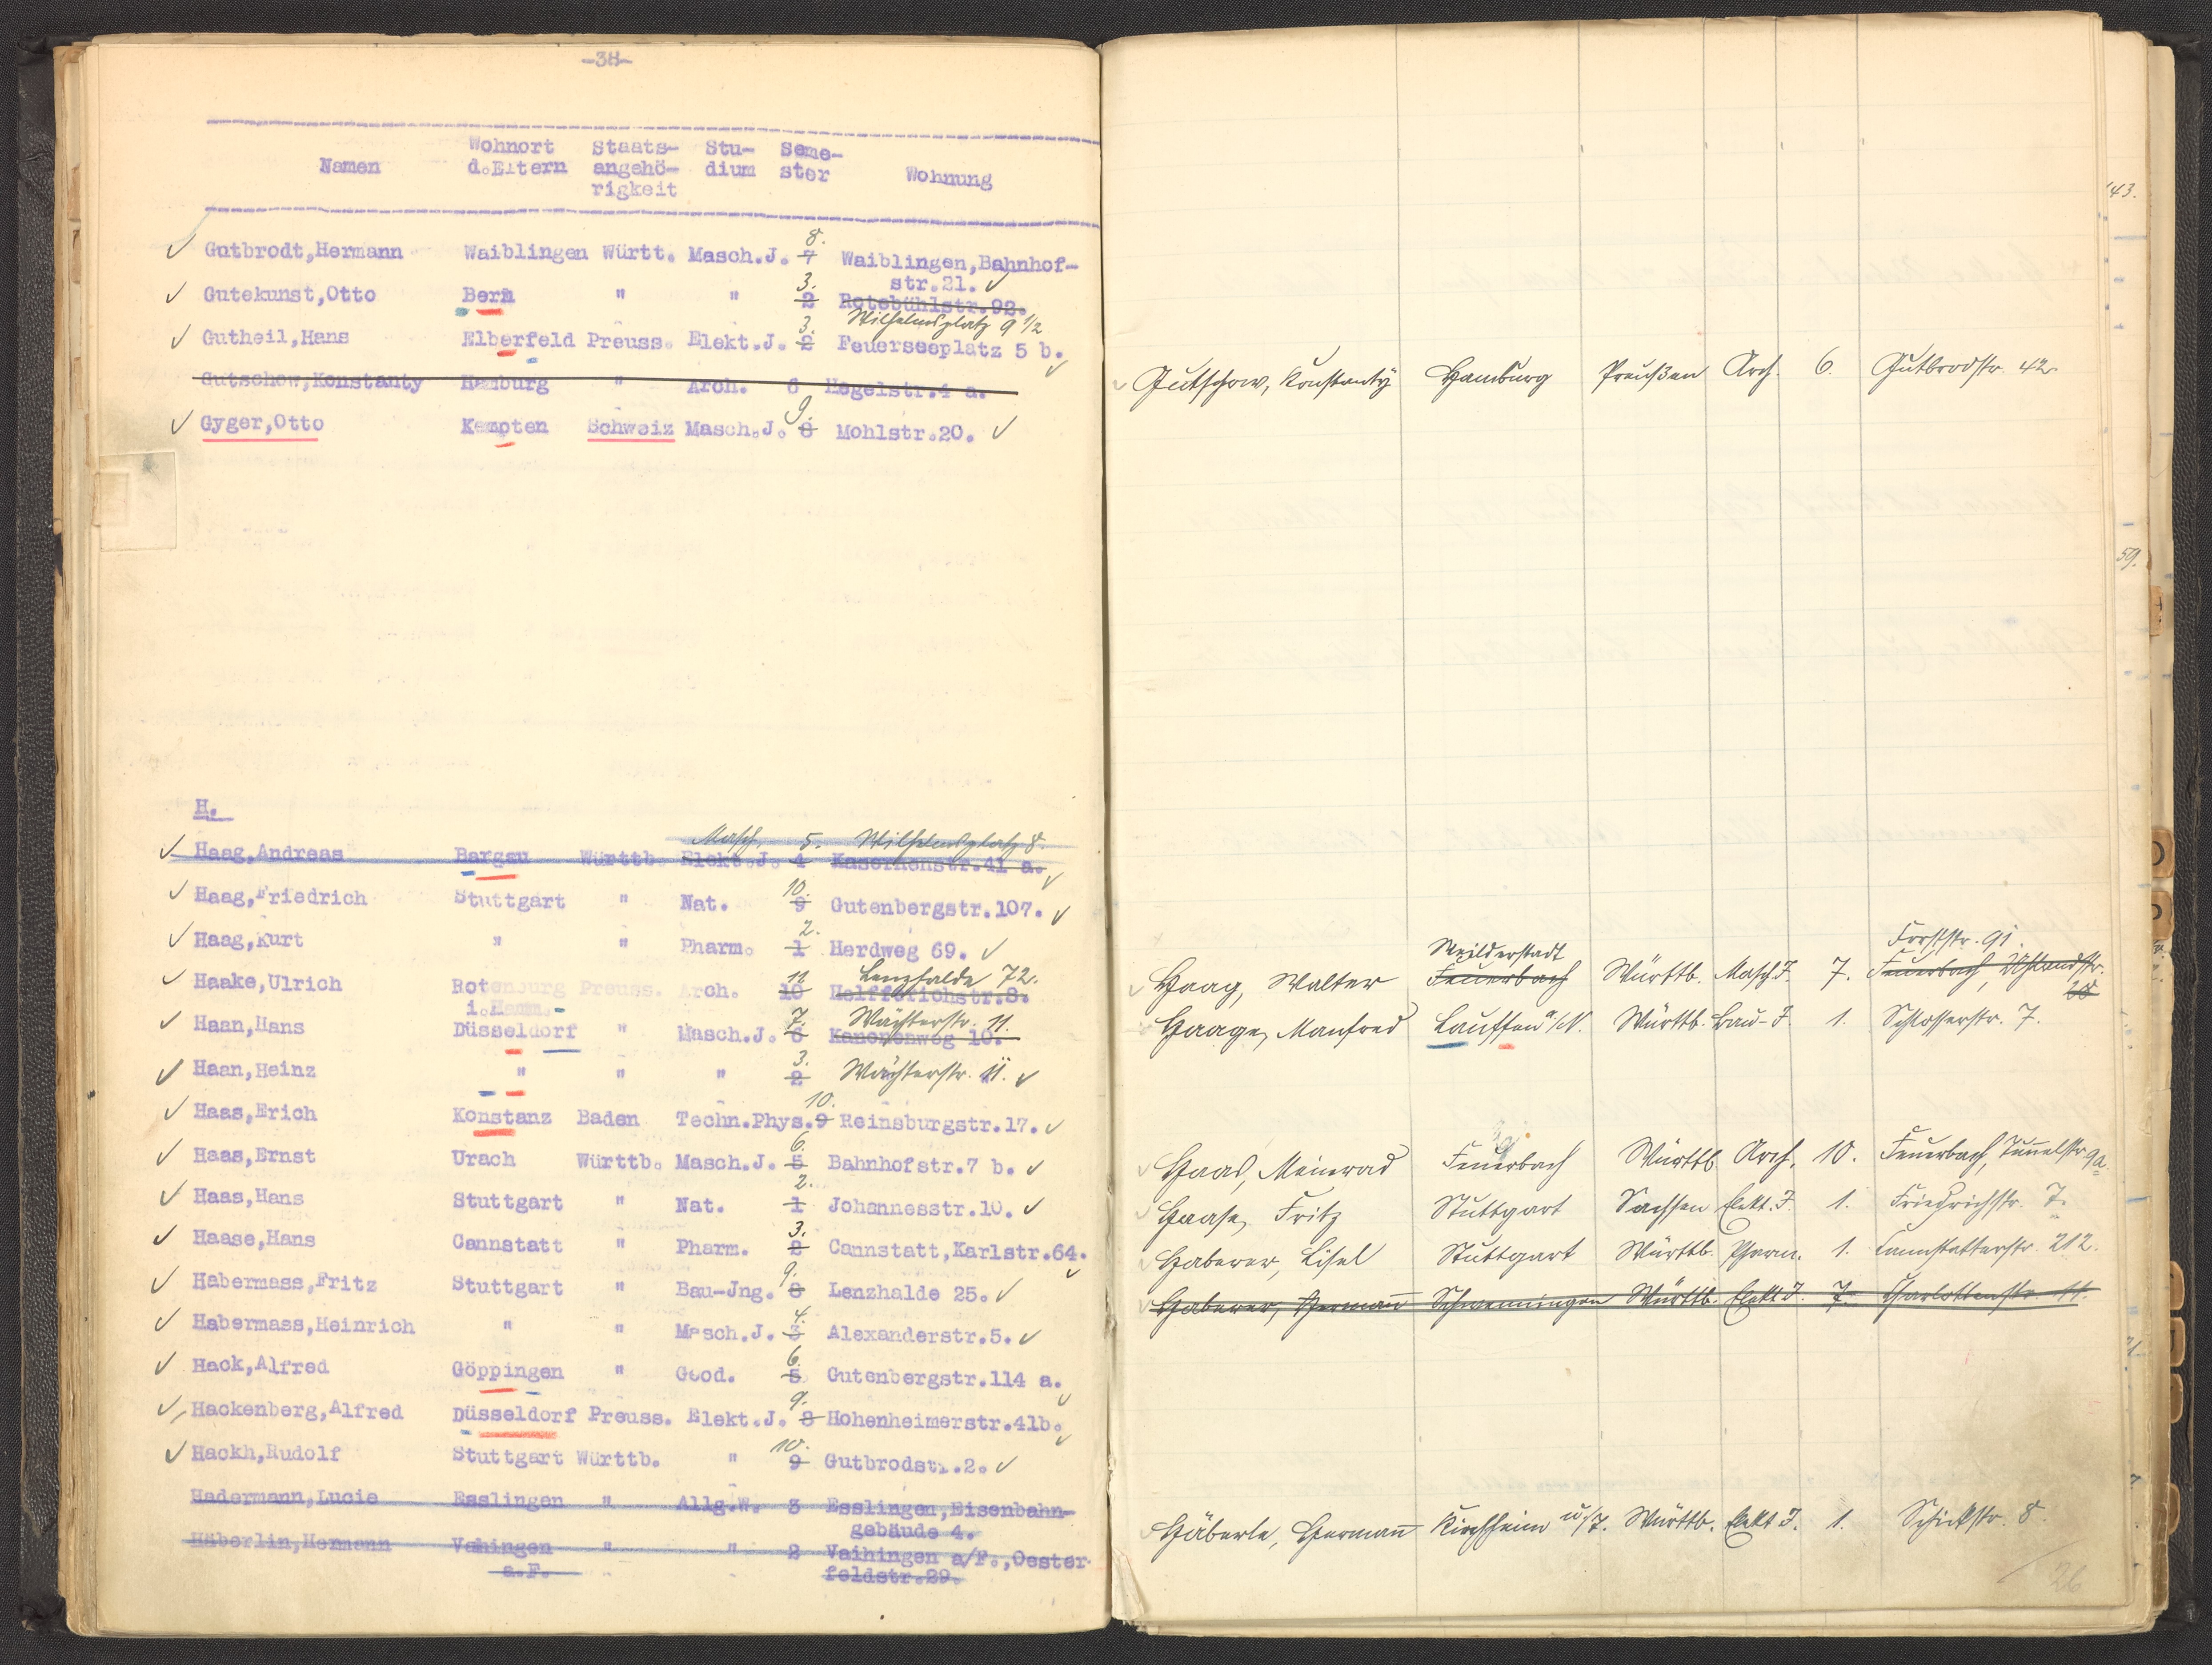 -38-
Namen Wohnort d.Eltern Staats- angehö- rigkeit Stu- dium Seme- ster Wohnung
Gutbrodt,Hermann Waiblingen Württ. Masch.J. 7 8. Waiblingen,Bahnhof-
str.21.
Gutekunst,Otto Bern " " 2 3. Rotebühlstr.92.
Wilhelmsplatz 9 1/2
Gutheil,Hans Elberfeld Preuss. Elekt.J. 2 3. Feuerseeplatz 5 b.
Gutschow,Konstanty Hamburg " Arch. 6 Hegelstr.4 a.
Gyger,Otto Kempten Schweiz Masch.J. 8 9. Mohlstr.20.
H.
Masch. 5. Wilhelmsplatz 8.
Haag,Andreas Bargau Württb. Elekt.J. 4 Kasernenstr.41 a.
Haag,Friedrich Stuttgart " Nat. 9 10. Gutenbergstr.107.
Haag,Kurt " " Pharm. 1 2. Herdweg 69.
11 Lenzhalde 72.
Haake,Ulrich Rotenburg Preuss. Arch. 10 Helfferichstr.8.
i.Hann.
7. Wächterstr. 11.
Haan,Hans Düsseldorf " Masch.J. 6 Kanonenweg 10.
Haan,Heinz " " " 2 3. Wächterstr. 11.
Haas,Erich Konstanz Baden Techn.Phys. 9 10. Reinsburgstr.17.
Haas,Ernst Urach Württb. Masch.J. 5 6. Bahnhofstr.7 b.
Haas,Hans Stuttgart " Nat. 1 2. Johannesstr.10.
Haase,Hans Cannstatt " Pharm. 2 3. Cannstatt,Karlstr.64.
Habermass,Fritz Stuttgart " Bau-Jng. 8 9. Lenzhalde 25.
Habermass,Heinrich " " Masch.J. 3 4. Alexanderstr.5.
Hack,Alfred Göppingen " Geod. 5 6. Gutenbergstr.114 a.
Hackenberg,Alfred Düsseldorf Preuss. Elekt.J. 8 9. Hohenheimerstr.41b.
Hackh,Rudolf Stuttgart Württb. " 9 10. Gutbrodstr.2.
Hadermann,Lucie Esslingen " Allg.W. 3 Esslingen,Eisenbahn-
gebäude 4.
Häberlin,Hermann Vaihingen " " 2 Vaihingen a/F.,Oester-
a.F. feldstr.29.
Gutschow, Konstanty Hamburg Preußen Arch. 6. Gutbrodstr. 42.
Weilderstadt Forststr. 91.
Haag, Walter Feuerbach Württb. Masch J. 7. Feuerbach, Uhlandstr.
28
Haage, Manfred Lauffen a/N. Württb. Bau-J. 1. Schlosserstr. 7.
Haas, Meinrad Feuerbach Württb. Arch. 10. Feuerbach, Tunnelstr 9a.
Haase, Fritz Stuttgart Sachsen Elekt. J. 1. Friedrichstr. 7.
Haberer, Lisel Stuttgart Württb. Pharm. 1. Cannstatterstr. 212.
Haberer, Hermann Schwenningen Württb. Elekt J. 7. Charlottenstr. 11.
Häberle, Hermann Kirchheim u/T. Württb. Elekt J. 1. Schickstr. 8.
26
43.
59.